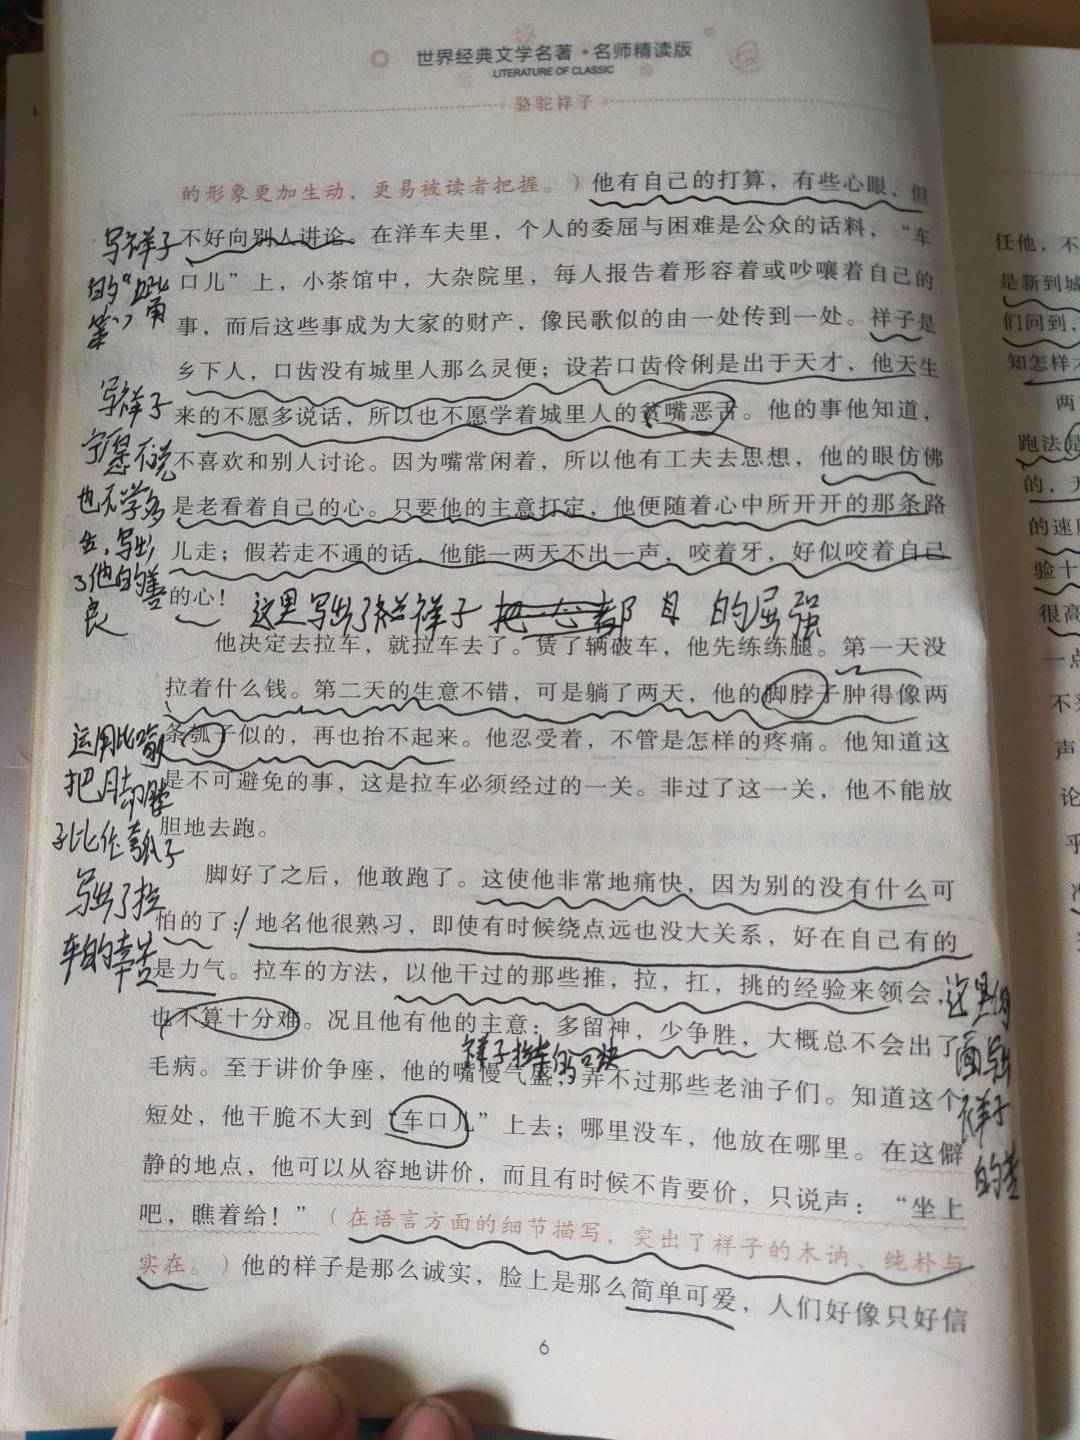 世界经典文学名著·名师精读版
LITERATURE OF CLASSIC
骆驼祥子
的形象更加生动，更易被读者把握。）他有自己的打算，有些心眼，但
不好向别人讲论。在洋车夫里，个人的委屈与困难是公众的话料，“车
口儿”上，小茶馆中，大杂院里，每人报告着形容着或吵嚷着自己的
事，而后这些事成为大家的财产，像民歌似的由一处传到一处。祥子是
乡下人，口齿没有城里人那么灵便；设若口齿伶俐是出于天才，他天生
来的不愿多说话，所以也不愿学着城里人的贫嘴恶舌。他的事他知道，
不喜欢和别人讨论。因为嘴常闲着，所以他有工夫去思想，他的眼仿佛
是老看着自己的心。只要他的主意打定，他便随着心中所开开的那条路
儿走；假若走不通的话，他能一两天不出一声，咬着牙，好似咬着自己
的心！
这里写出了祥子 的屈强
他决定去拉车，就拉车去了。赁了辆破车，他先练练腿。第一天没
拉着什么钱。第二天的生意不错，可是躺了两天，他的脚脖子肿得像两
条瓠子似的，再也抬不起来。他忍受着，不管是怎样的疼痛。他知道这
是不可避免的事，这是拉车必须经过的一关。非过了这一关，他不能放
胆地去跑。
脚好了之后，他敢跑了。这使他非常地痛快，因为别的没有什么可
怕的了：地名他很熟习，即使有时候绕点远也没大关系，好在自己有的
是力气。拉车的方法，以他干过的那些推，拉，扛，挑的经验来领会，
也不算十分难。况且他有他的主意：多留神，少争胜，大概总不会出了
祥子拉车的口决
毛病。至于讲价争座，他的嘴慢气盛，弄不过那些老油子们。知道这个
短处，他干脆不大到“车口儿”上去；哪里没车，他放在哪里。在这僻
静的地点，他可以从容地讲价，而且有时候不肯要价，只说声：“坐上
吧，瞧着给！”（在语言方面的细节描写，突出了祥子的木讷、纯朴与
实在。）他的样子是那么诚实，脸上是那么简单可爱，人们好像只好信
6
写祥子
的“嘴
笨”
写祥子
宁愿不说
也不学多
舌，写出
了他的善
良
运用比喻
把脚脖
子比作瓠子
写出了拉
车的辛苦
这里侧
面写出
祥子
的
任他，不
是新到城
们问到，
知怎样
两
跑法是
的，
的速
验十
很高
一点
不
声
论
乎